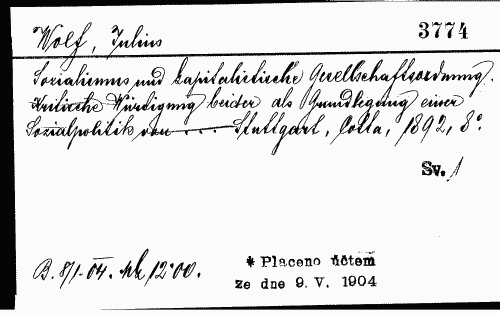 Wolf, Julius 3774
Sozialismus und kapitalistische Gesellschaftsordnung.
Kritische Würdigung beider als Grundlegung einer
Sozialpolitik von .... Stuttgart, Cotta, 1892, 8°.
Sv. 1
B. 8/1-04. Mk 12·00.
* Placeno účtem
ze dne 9. V. 1904